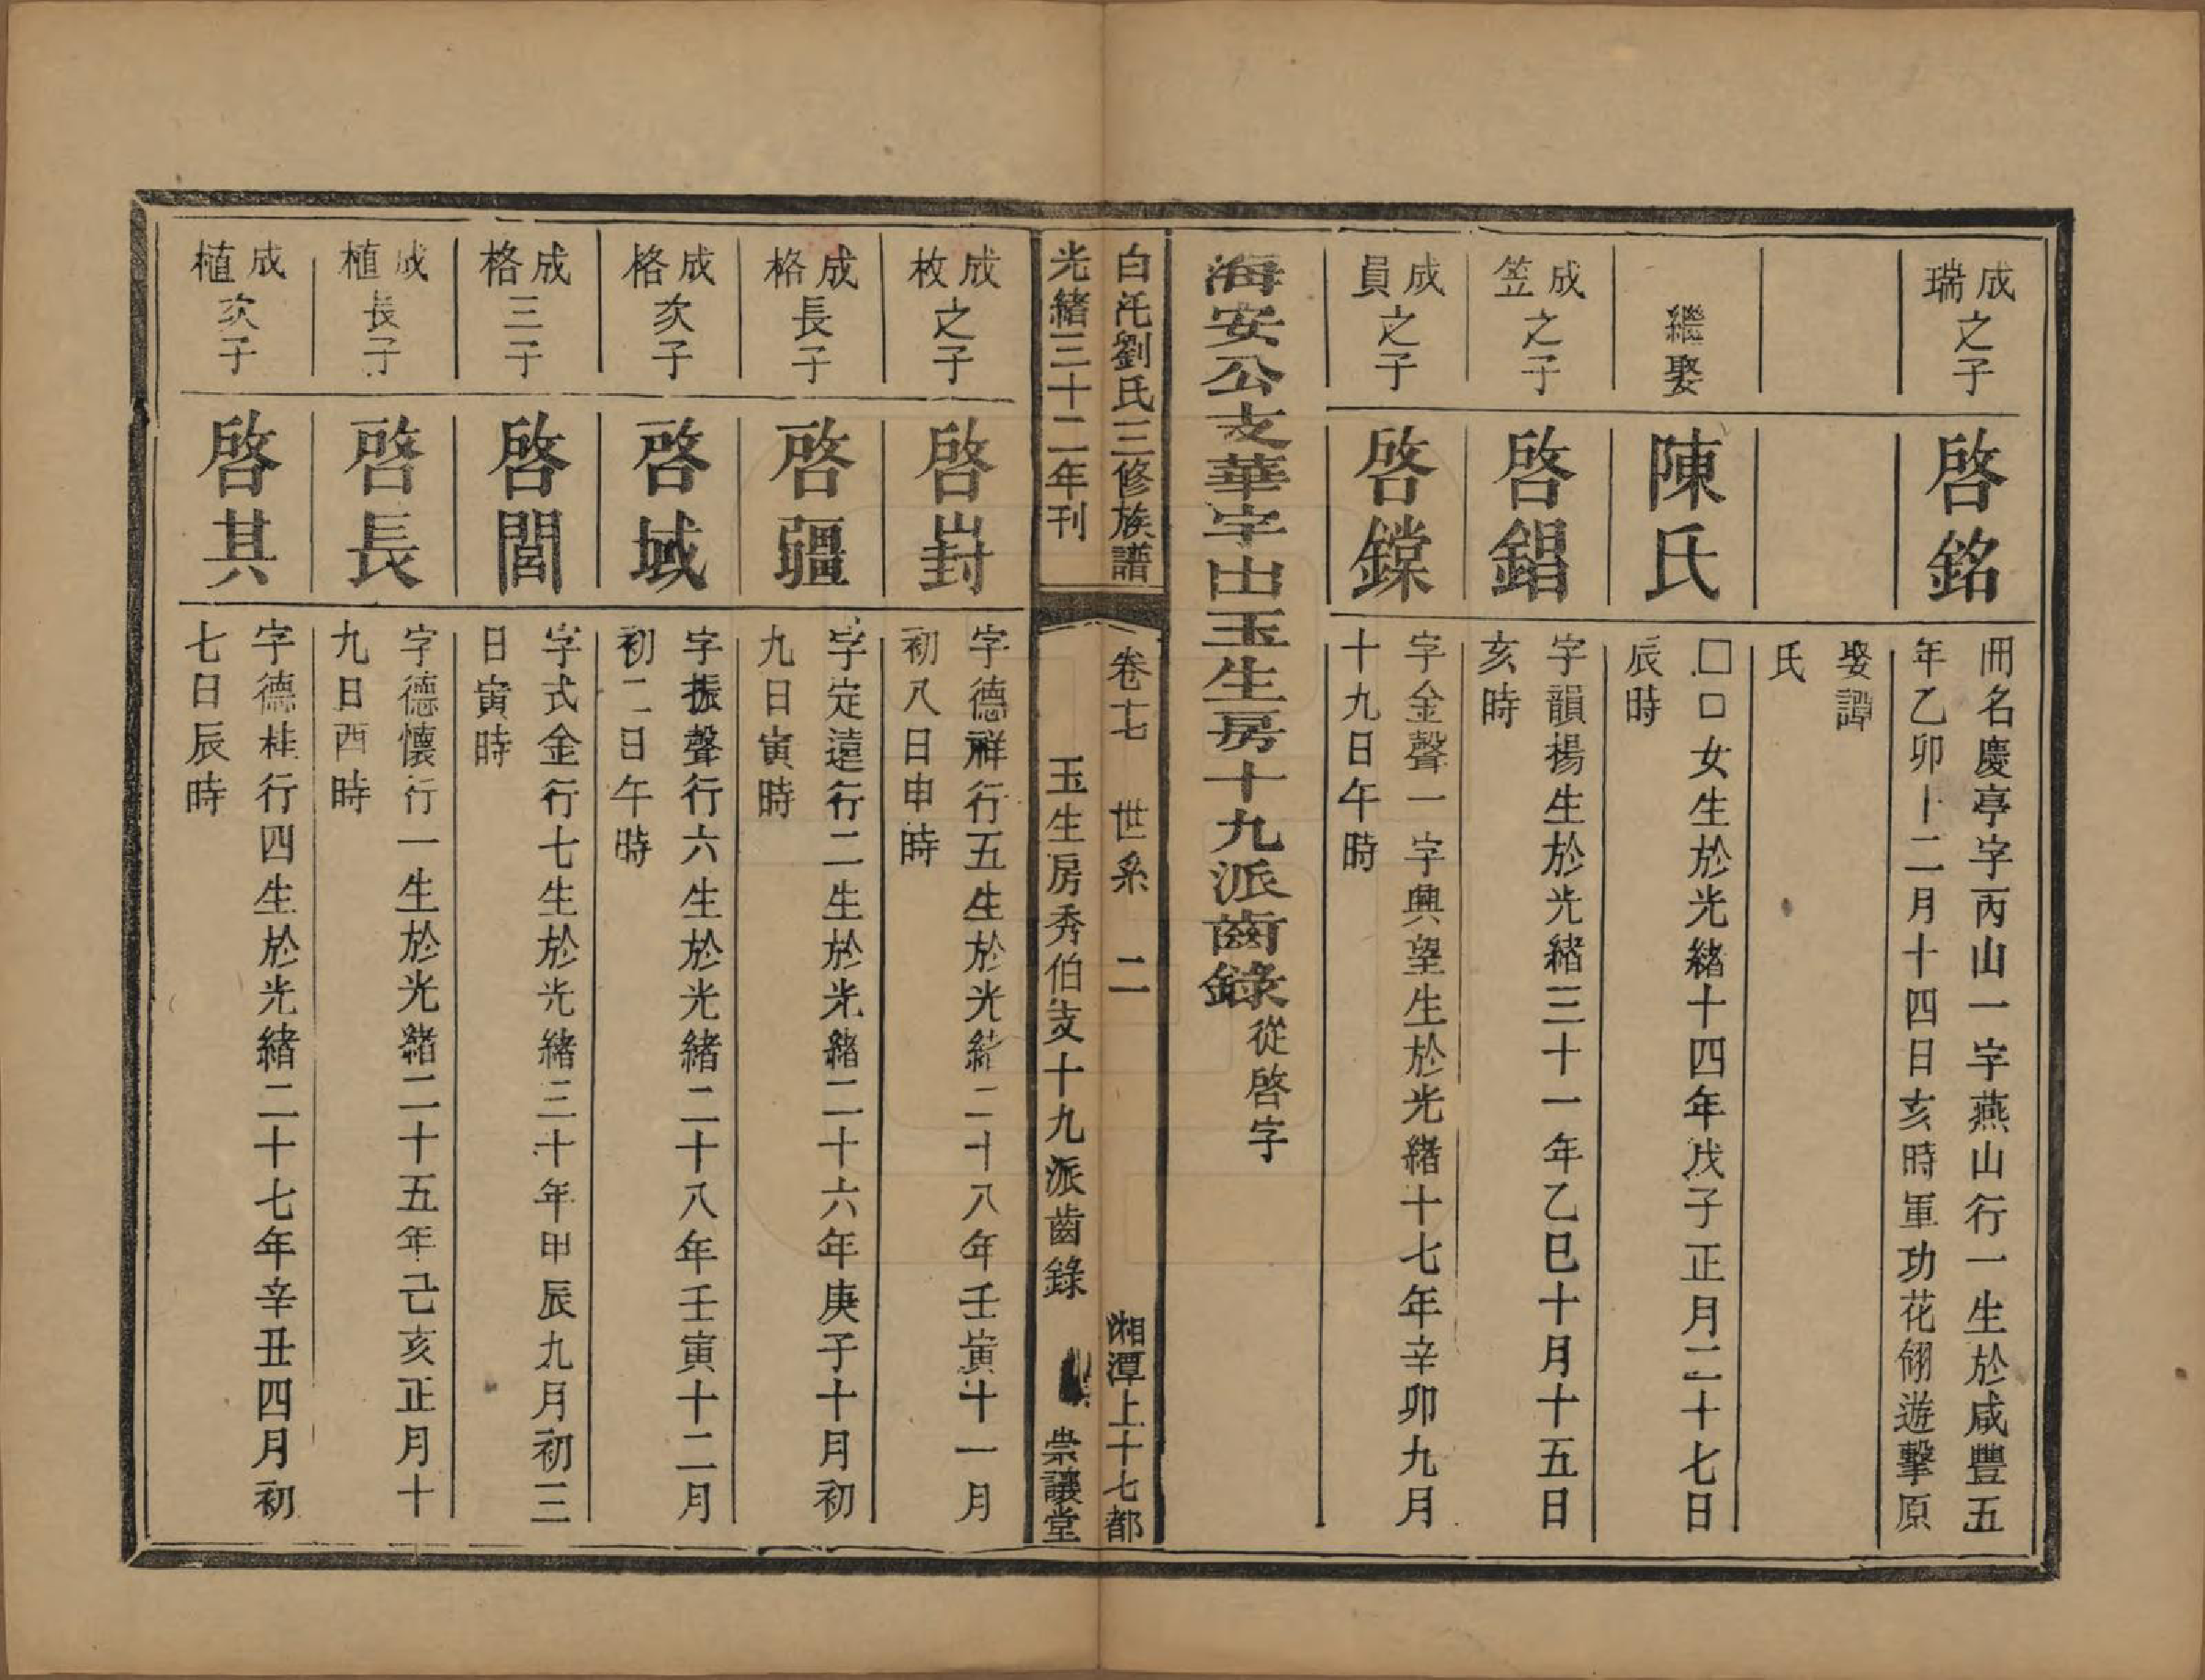 成瑞之子
啓銘
冊名慶亭字丙山一字燕山行一生於咸豐五
年乙卯十二月十四日亥時軍功花翎遊擊原
娶譚
氏
繼娶
陳氏
□□女生於光緒十四年戊子正月二十七日
辰時
成笠之子
啓錩
字韻楊生於光緒三十一年乙巳十月十五日
亥時
成員之子
啓鏿
字金聲一字興望生於光緒十七年辛卯九月
十九日午時
海安公支華宇山玉生房十九派齒錄從啓字
白汑劉氏三修族譜 卷七 世系 二 湘潭上十七都
光緒三十二年刊 玉生房秀伯支十九派齒錄 崇讓堂
成枚之子
啓崶
字德祥行五生於光緒二十八年壬寅十一月
初八日申時
成格長子
啓疆
字定遠行二生於光緒二十六年庚子十月初
九日寅時
成格次子
啓域
字振聲行六生於光緒二十八年壬寅十二月
初二日午時
成格三子
啓閭
字式金行七生於光緒三十年甲辰九月初三
日寅時
成植長子
啓長
字德懷行一生於光緒二十五年己亥正月十
九日酉時
成植次子
啓其
字德桂行四生於光緒二十七年辛丑四月初
七日辰時